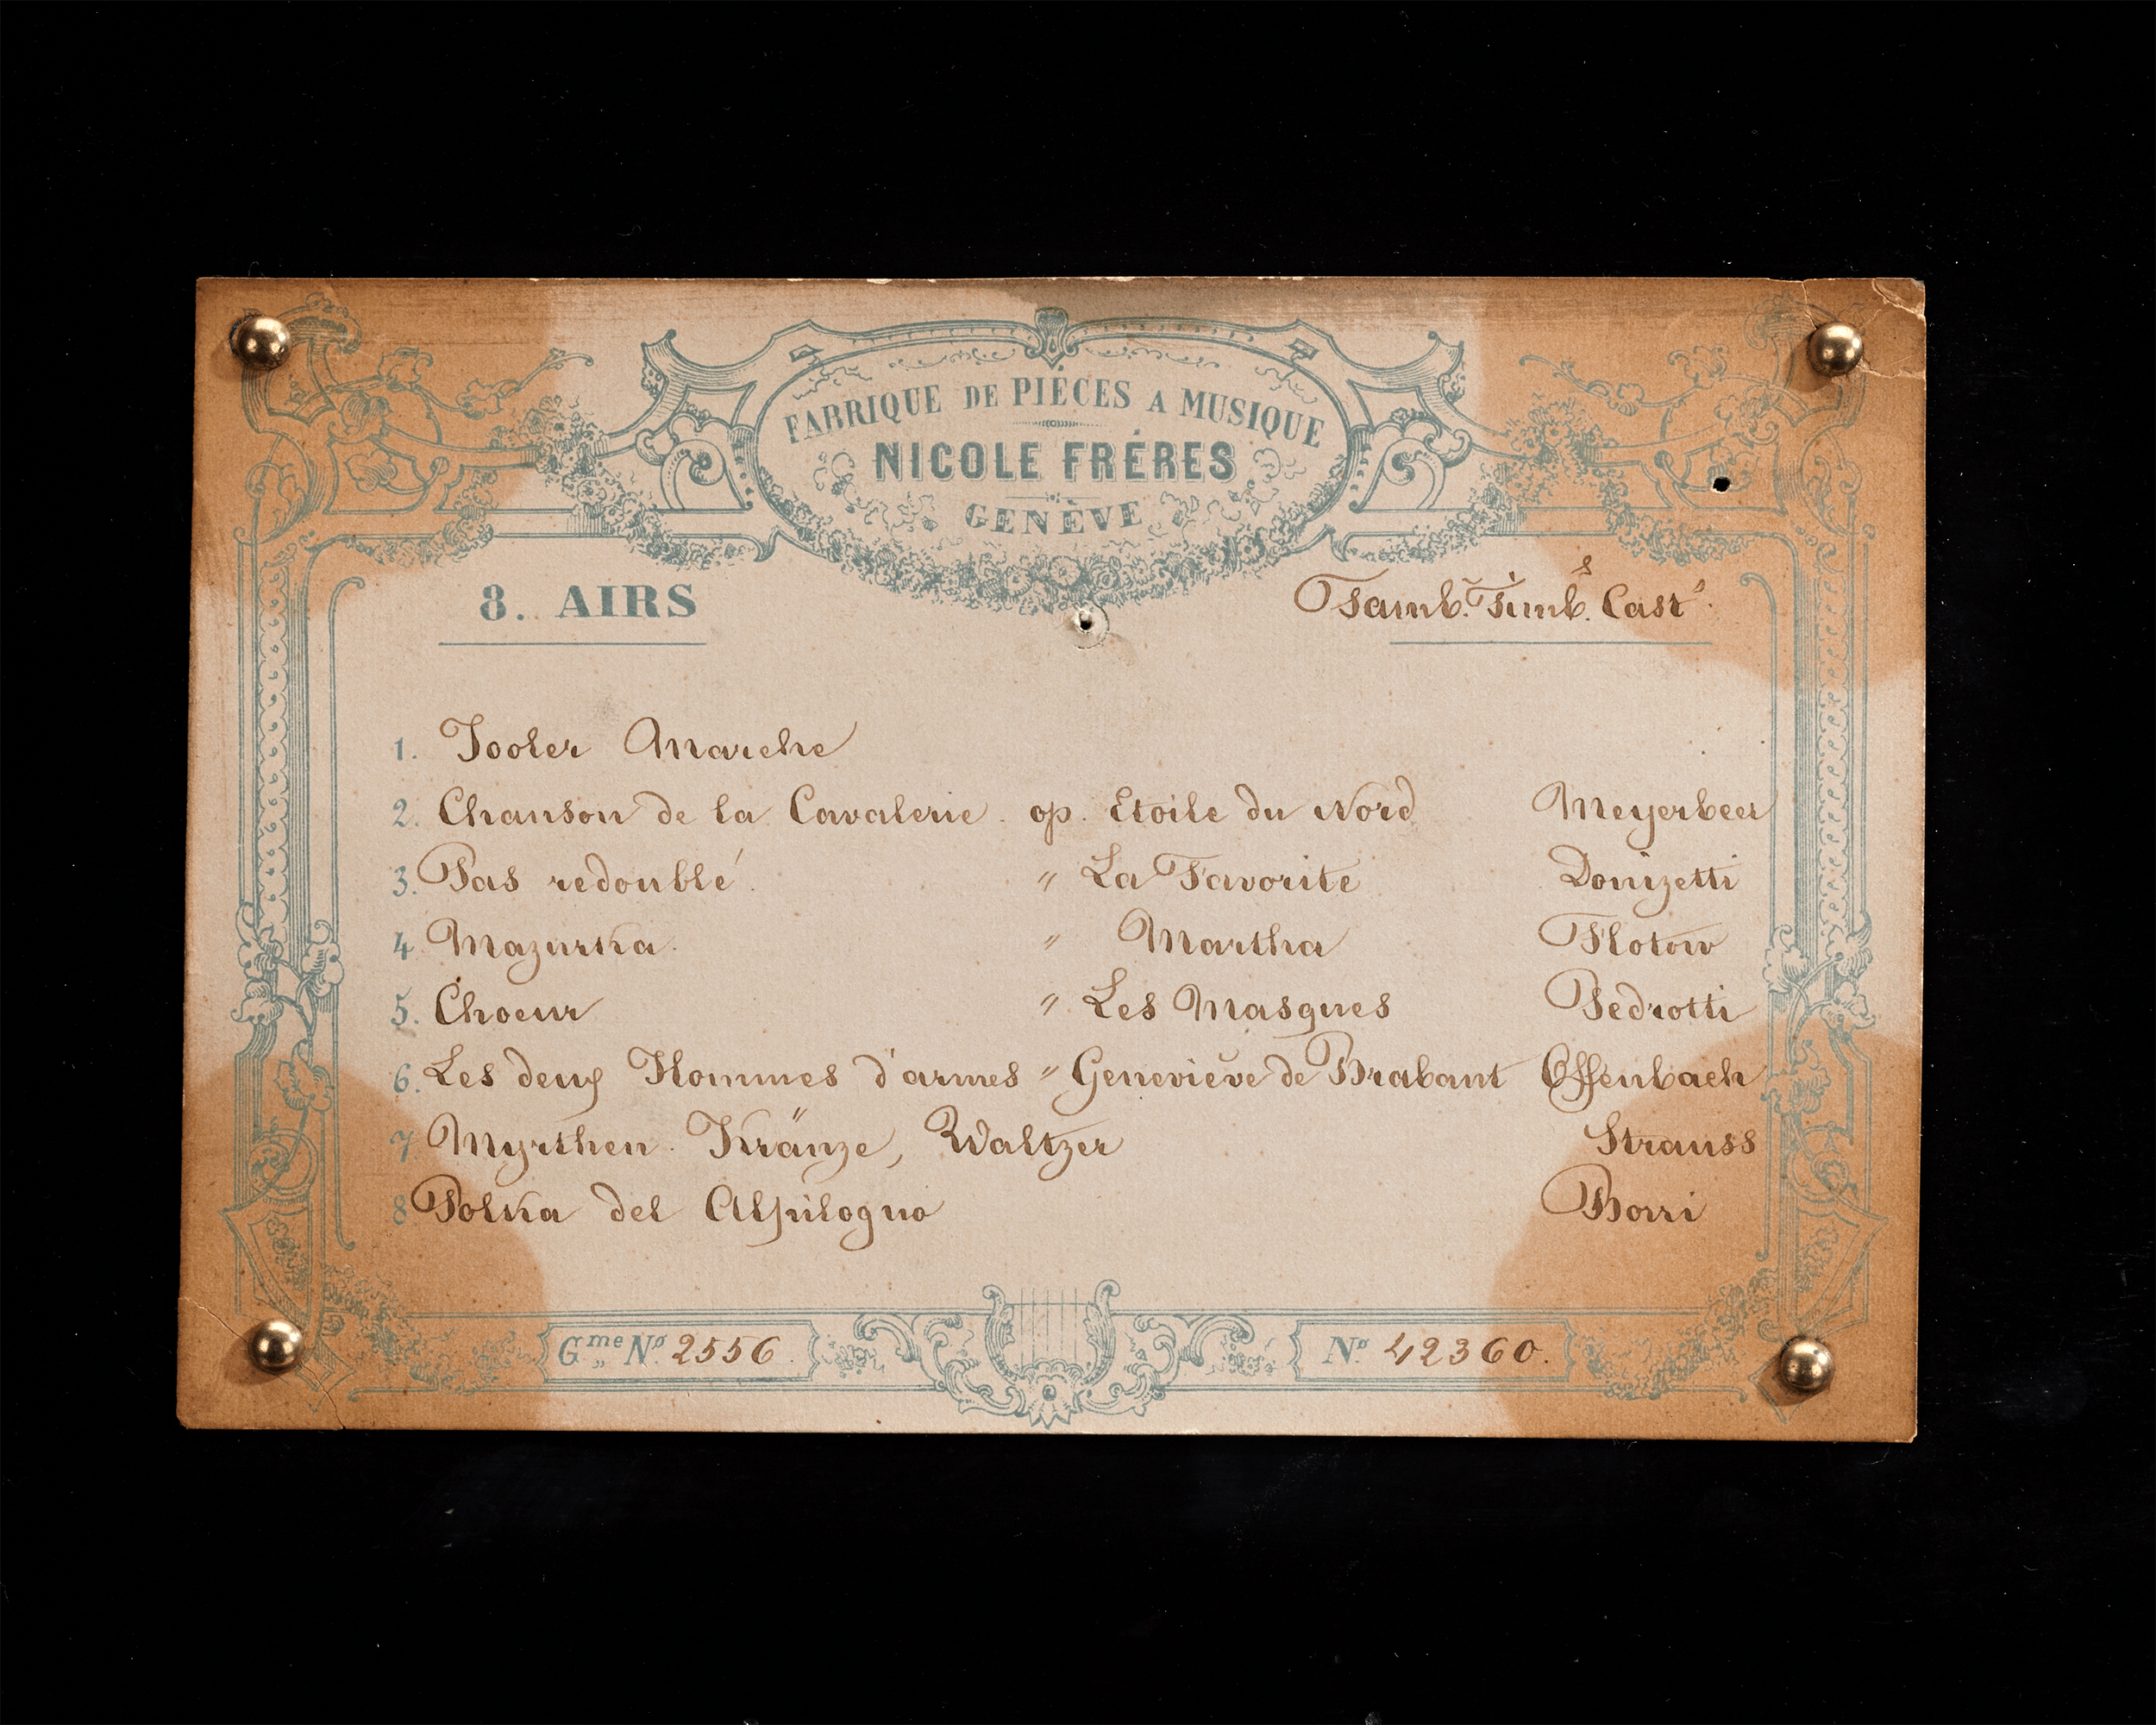 FABRIQUE DE PIÉCES A MUSIQUE
NICOLE FRÉRES
GENÈVE
8. AIRS
Tamb. Timb.s Cast.s
1. Tooler Marche
2. Chanson de la Cavalerie. op. Etoile du Nord Meyerbeer
3. Pas redoublé. " La Favorite Donizetti
4 Mazurka. " Martha Flotow
5. Choeur " Les Masques Pedrotti
6. Les deux Hommes d'armes " Geneviève de Brabant Offenbach
7 Myrthen. Kränze, Waltzer Strauss
8 Polka del Alpilogno Borri
Gme No. 2556.
No. 42360.